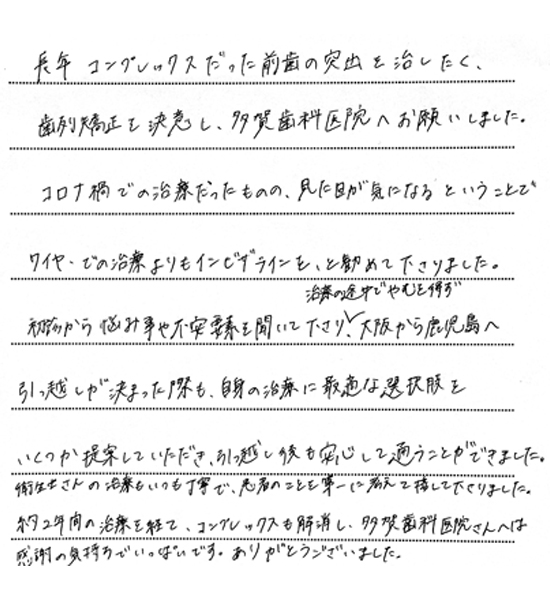 長年 コンプレックスだった前歯の突出を治したく、
歯列矯正を決意し、多賀歯科医院へお願いしました。
コロナ禍での治療だったものの、見た目が気になるということで
ワイヤーでの治療よりもインビザラインを、と勧めて下さりました。
治療の途中でやむを得ず
初診から悩み事や不安要素を聞いて下さり、大阪から鹿児島へ
引っ越しが決まった際も、自身の治療に最適な選択肢を
いくつか提案していただき、引っ越し後も安心して通うことができました。
衛生士さんの治療もいつも丁寧で、患者のことを第一に考えて接して下さりました。
約2年間の治療を経て、コンプレックスも解消し、多賀歯科医院さんへは
感謝の気持ちでいっぱいです。ありがとうございました。